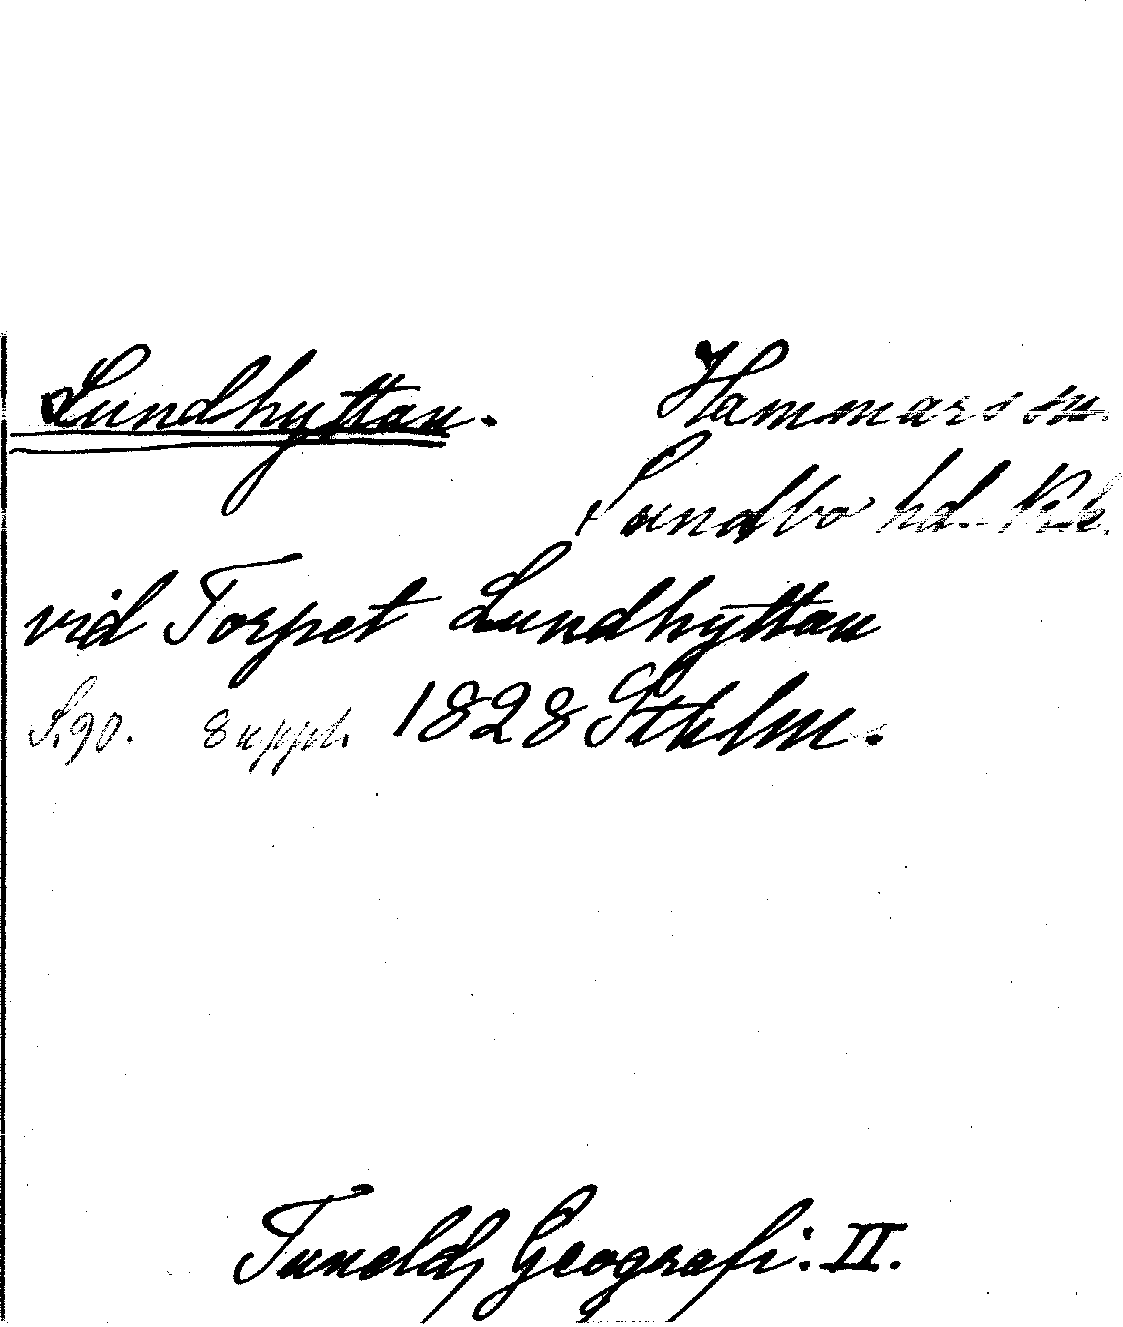 Lundhyttan. Hammars sn.
Sundbo hd. Nke.
vid Torpet Lundhyttan
S. 90. 8 uppl. 1828 Sthlm.
Tuneld, Geografi: II.